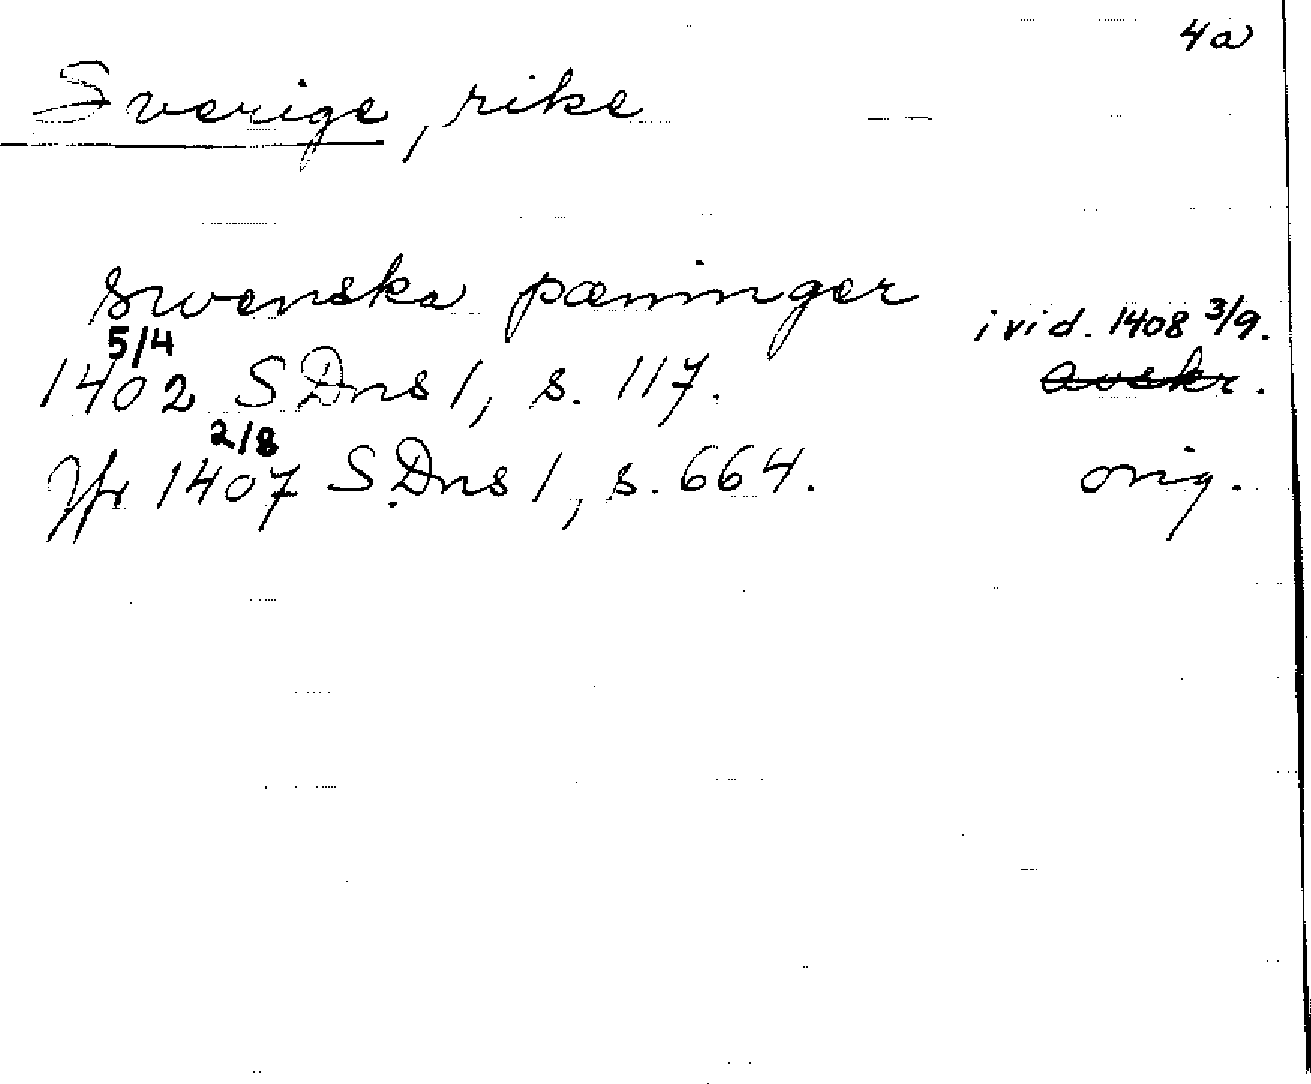 4a
Sverige, rike
swenska pæninger
i vid. 1408 3/9.
5/4
1402 SDns 1, s. 117. avskr.
2/8
Jfr 1407 SDns 1, s. 664. orig.